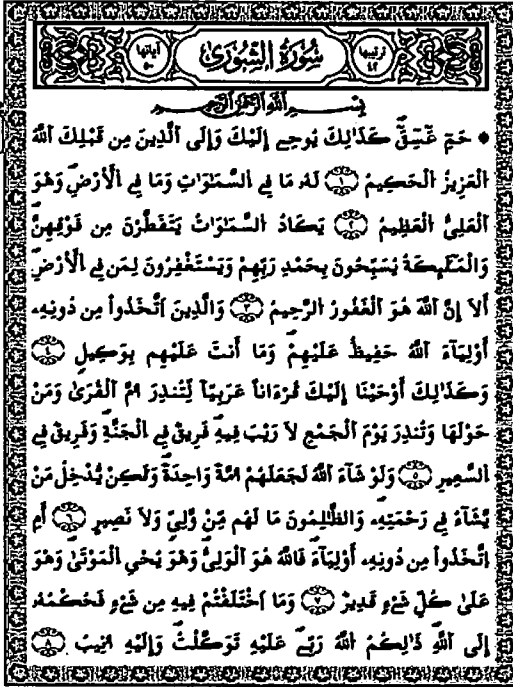 ترتيبها ٤٢ سُورَةُ الشُّورَىٰ آياتها ٥٠
بِسْمِ اللَّهِ الرَّحْمَٰنِ الرَّحِيمِ
حَمٓ عٓسٓقٓ كَذَٰلِكَ يُوحِے إِلَيْكَ وَإِلَى اَ۬لذِينَ مِن قَبْلِكَ اَ۬للَّهُ
اُ۬لْعَزِيزُ اُ۬لْحَكِيمُ ١ لَهُۥ مَا فِے اِ۬لسَّمَٰوَٰتِ وَمَا فِے اِ۬لْأَرْضِ وَهُوَ
اَ۬لْعَلِيُّ اُ۬لْعَظِيمُ ٢ يَكَادُ اُ۬لسَّمَٰوَٰتُ يَتَفَطَّرْنَ مِن فَوْقِهِنَّ
وَالْمَلَٰٓئِكَةُ يُسَبِّحُونَ بِحَمْدِ رَبِّهِمْ وَيَسْتَغْفِرُونَ لِمَن فِے اِ۬لْأَرْضِ
أَلَا إِنَّ اَ۬للَّهَ هُوَ اَ۬لْغَفُورُ اُ۬لرَّحِيمُ ٣ وَالذِينَ اَ۪تَّخَذُواْ مِن دُونِهِۦ
أَوْلِيَآءَ اَ۬للَّهُ حَفِيظٌ عَلَيْهِمْ وَمَا أَنتَ عَلَيْهِم بِوَكِيلٍ ٤
وَكَذَٰلِكَ أَوْحَيْنَا إِلَيْكَ قُرْءَاناً عَرَبِيّاً لِّتُنذِرَ أُمَّ اَ۬لْقُرَىٰ وَمَنْ
حَوْلَهَا وَتُنذِرَ يَوْمَ اَ۬لْجَمْعِ لَا رَيْبَ فِيهِ فَرِيقٌ فِے اِ۬لْجَنَّةِ وَفَرِيقٌ فِے
اِ۬لسَّعِيرِ ٥ وَلَوْ شَآءَ اَ۬للَّهُ لَجَعَلَهُمْ أُمَّةً وَاحِدَةً وَلَٰكِنْ يُّدْخِلُ مَنْ
يَّشَآءُ فِے رَحْمَتِهِۦ وَالظَّٰلِمُونَ مَا لَهُم مِّنْ وَّلِيٍّ وَلَا نَصِيرٍ ٦ أَمِ
اِ۪تَّخَذُواْ مِن دُونِهِۦ أَوْلِيَآءَ فَاللَّهُ هُوَ اَ۬لْوَلِيُّ وَهُوَ يُحْيِ اِ۬لْمَوْتَىٰ وَهُوَ
عَلَىٰ كُلِّ شَےْءٍ قَدِيرٌ ٧ وَمَا اَ۪خْتَلَفْتُمْ فِيهِ مِن شَےْءٍ فَحُكْمُهُۥ
إِلَى اَ۬للَّهِ ذَٰلِكُمُ اُ۬للَّهُ رَبِّے عَلَيْهِ تَوَكَّلْتُ وَإِلَيْهِ أُنِيبُ ٨